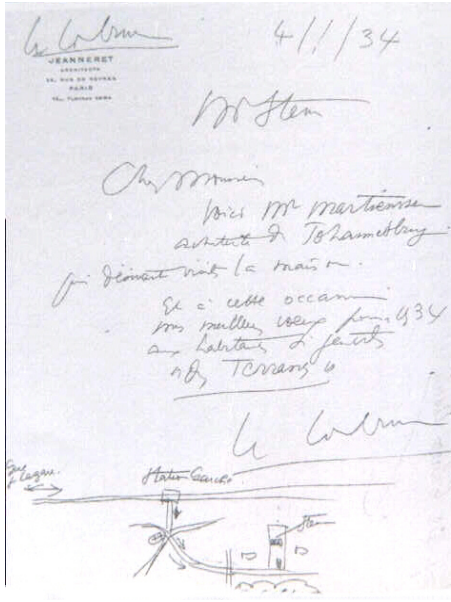 Le Corbusier
JEANNERET
ARCHITECTE
35, RUE DE SEVRES
PARIS
4/1/34
Mr Stein
Cher Monsieur
Voici Mr Martienssen
architecte de Johannesburg
qui désirerait visiter la maison.
Et à cette occasion
mes meilleurs voeux pour 1934
aux habitants si gentils
des Terrasses
Le Corbusier
Gare
St Lazare
Station Garches
Stein